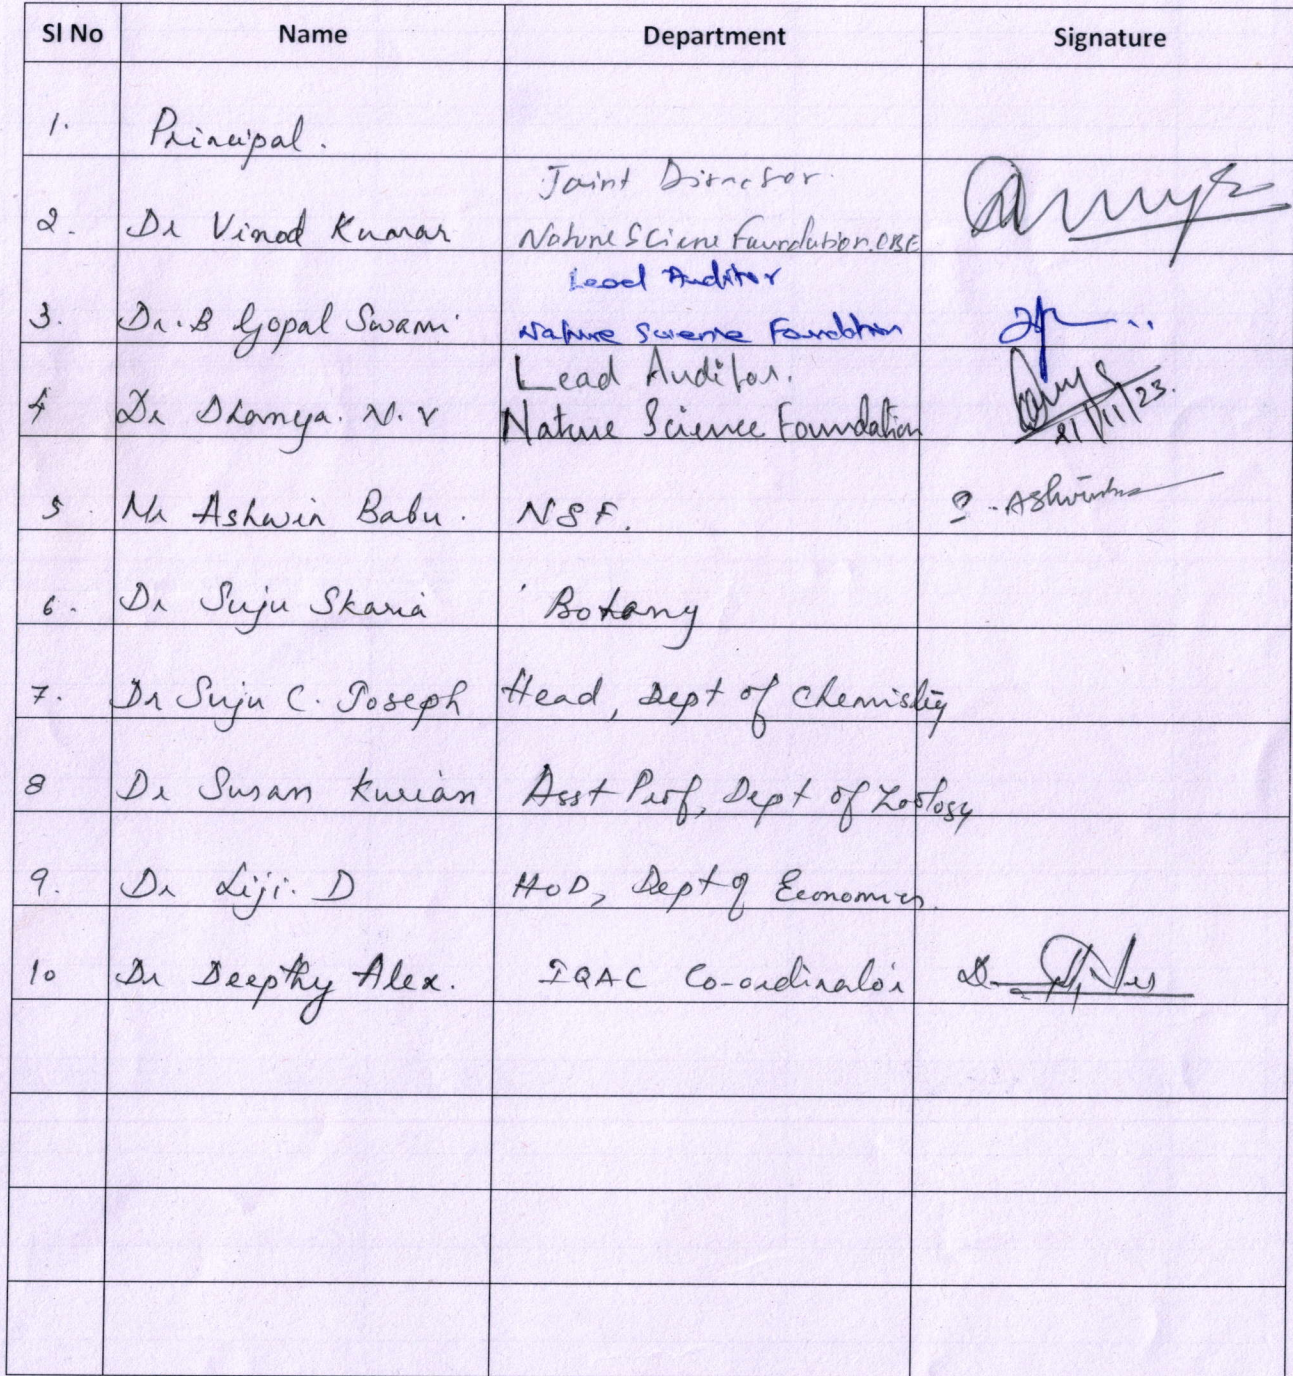 Sl No Name Department Signature
1. Principal.
Joint Director
2. Dr Vinod Kumar Nature Science Foundation, CBE
Lead Auditor
3. Dr. B Gopal Swami Nature Science Foundation
Lead Auditor.
4 Dr Dhanya. N. V Nature Science Foundation
21/11/23.
5. Mr Ashwin Babu. NSF. Ashwin
6. Dr Suju Skaria Botany
7. Dr Suju C. Joseph Head, Dept of Chemistry
8 Dr Susan Kurian Asst Prof, Dept of Zoology
9. Dr Liji. D HoD, Dept of Economics.
10 Dr Deepthy Alex. IQAC Co-ordinator